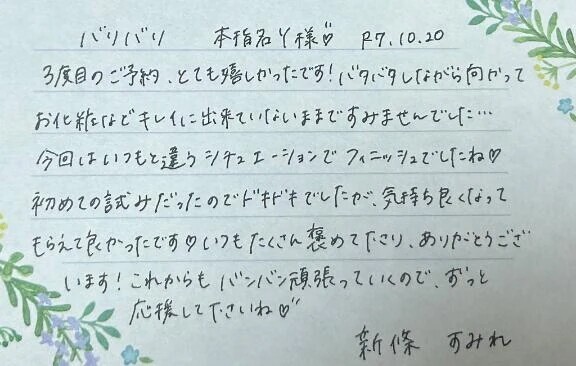 バリバリ 本指名Y様♡ R7.10.20
3度目のご予約、とても嬉しかったです！バタバタしながら向かって
お化粧などキレイに出来ていないままですみませんでした…
今回はいつもと違うシチュエーションでフィニッシュでしたね♡
初めての試みだったのでドキドキでしたが、気持ち良くなって
もらえて良かったです♡いつもたくさん褒めて下さり、ありがとうござ
います！これからもバンバン頑張っていくので、ずっと
応援して下さいね♡
新條 すみれ